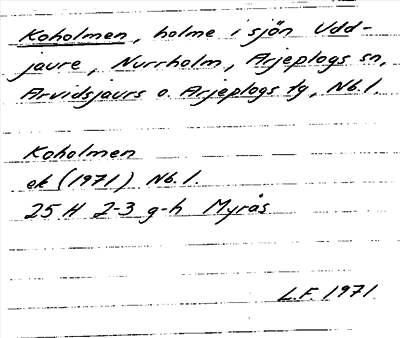 Koholmen, holme i sjön Udd-
jaure, Nurrholm, Arjeplogs sn,
Arvidsjaurs o. Arjeplogs tg, Nb. l.
Koholmen
ek (1971) Nb. l.
25 H 2-3 g-h Myrås
L.F. 1971.